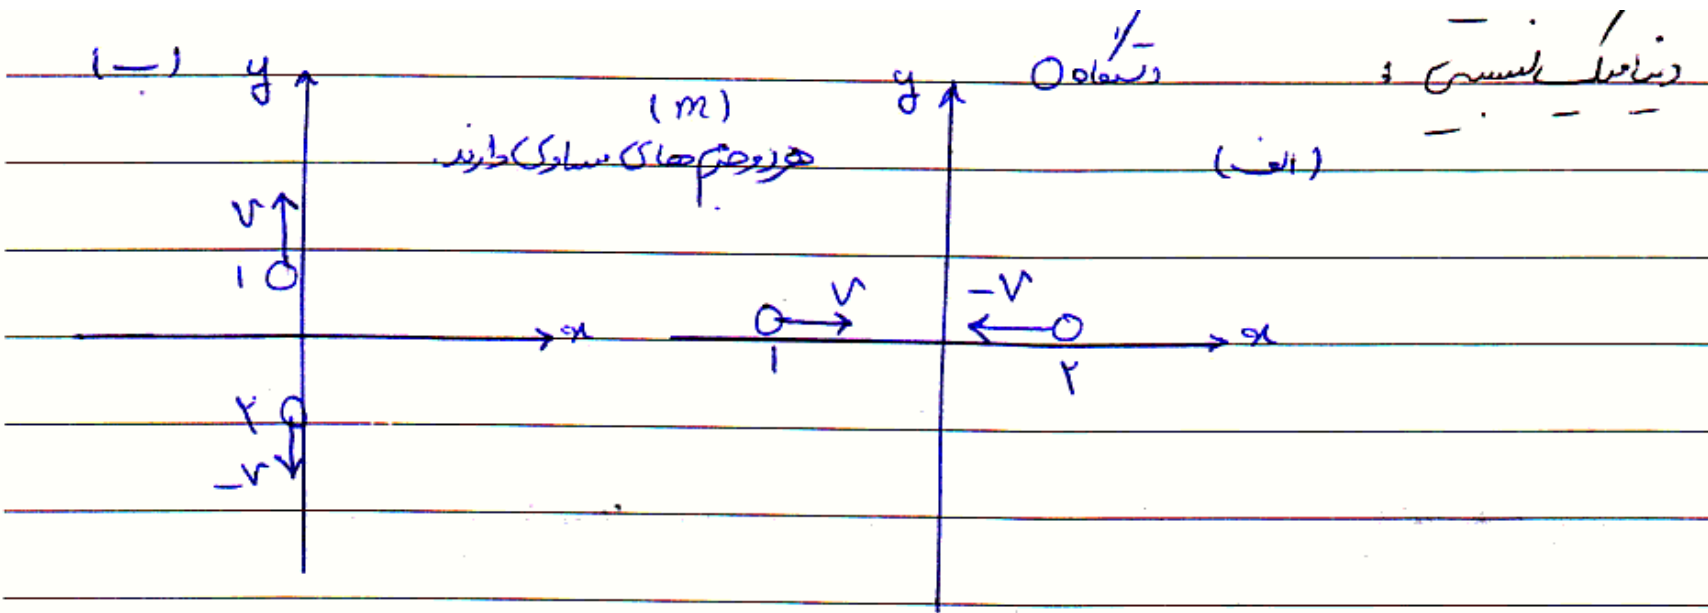 دینامیک نسبیتی :
دستگاه O
(الف)
y
(m)
هر دو جرم های مساوی دارند.
(ب)
y
v
۱
x
v
۱
-v
۲
x
۲
-v